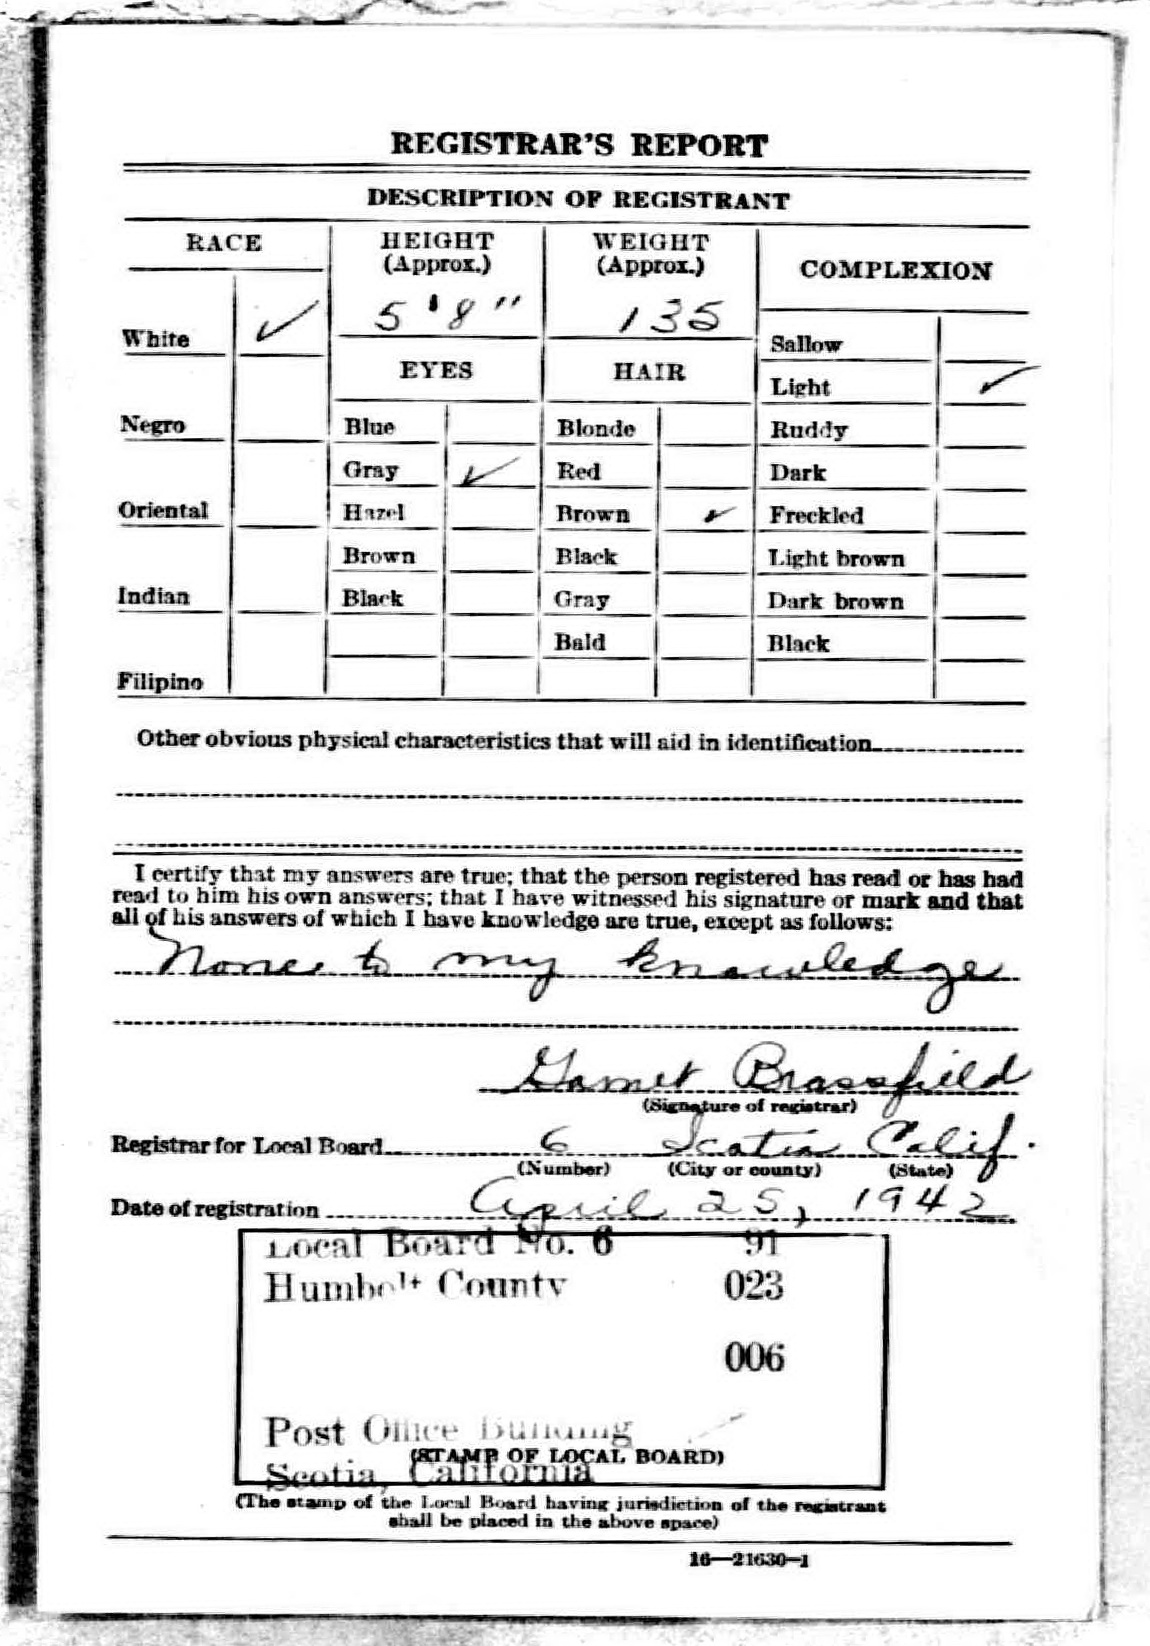 REGISTRAR'S REPORT
DESCRIPTION OF REGISTRANT
RACE
HEIGHT
(Approx.)
WEIGHT
(Approx.)
COMPLEXION
5'8"
135
White ✓
Sallow
EYES
HAIR
Light ✓
Negro
Blue
Blonde
Ruddy
Gray ✓
Red
Dark
Oriental
Hazel
Brown ✓
Freckled
Brown
Black
Light brown
Indian
Black
Gray
Dark brown
Bald
Black
Filipino
Other obvious physical characteristics that will aid in identification
I certify that my answers are true; that the person registered has read or has had
read to him his own answers; that I have witnessed his signature or mark and that
all of his answers of which I have knowledge are true, except as follows:
None to my knowledge
Garnet Brassfield
(Signature of registrar)
Registrar for Local Board 6 Scotia Calif.
(Number) (City or county) (State)
Date of registration April 25, 1942
Local Board No. 6 91
Humbolt County 023
006
Post Office Building
(STAMP OF LOCAL BOARD)
Scotia, California
(The stamp of the Local Board having jurisdiction of the registrant
shall be placed in the above space)
16—21630-1